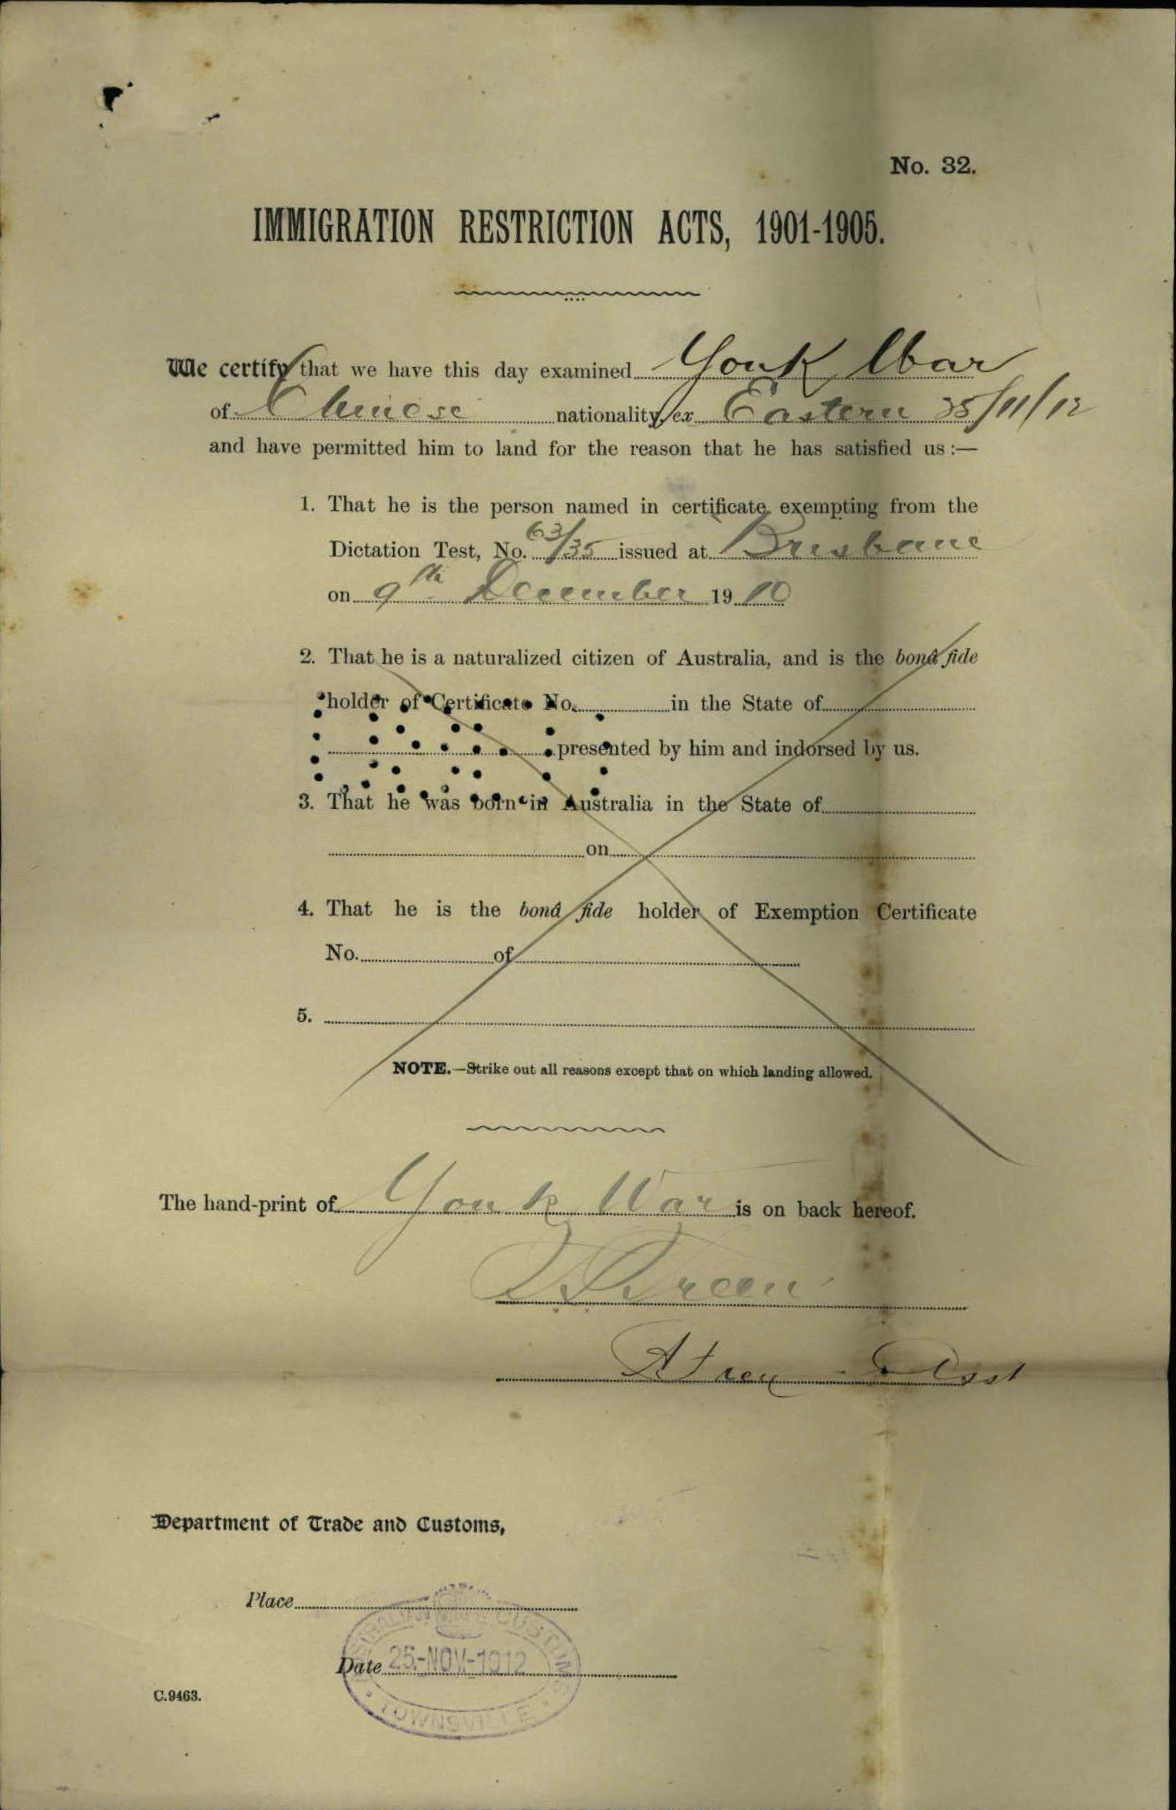 No. 32.
IMMIGRATION RESTRICTION ACTS, 1901-1905.
We certify that we have this day examined Youk War
of Chinese nationality, ex Eastern 25/11/12
and have permitted him to land for the reason that he has satisfied us :—
1. That he is the person named in certificate exempting from the
Dictation Test, No. 63/35 issued at Brisbane
on 9th December 1910
2. That he is a naturalized citizen of Australia, and is the bonâ fide
holder of Certificate No. in the State of
presented by him and indorsed by us.
3. That he was born in Australia in the State of
on
4. That he is the bonâ fide holder of Exemption Certificate
No. of
5.
NOTE.—Strike out all reasons except that on which landing allowed.
The hand-print of Youk War is on back hereof.
Department of Trade and Customs,
Place
Date 25-NOV-1912
CUSTOMS
TOWNSVILLE
C.9463.